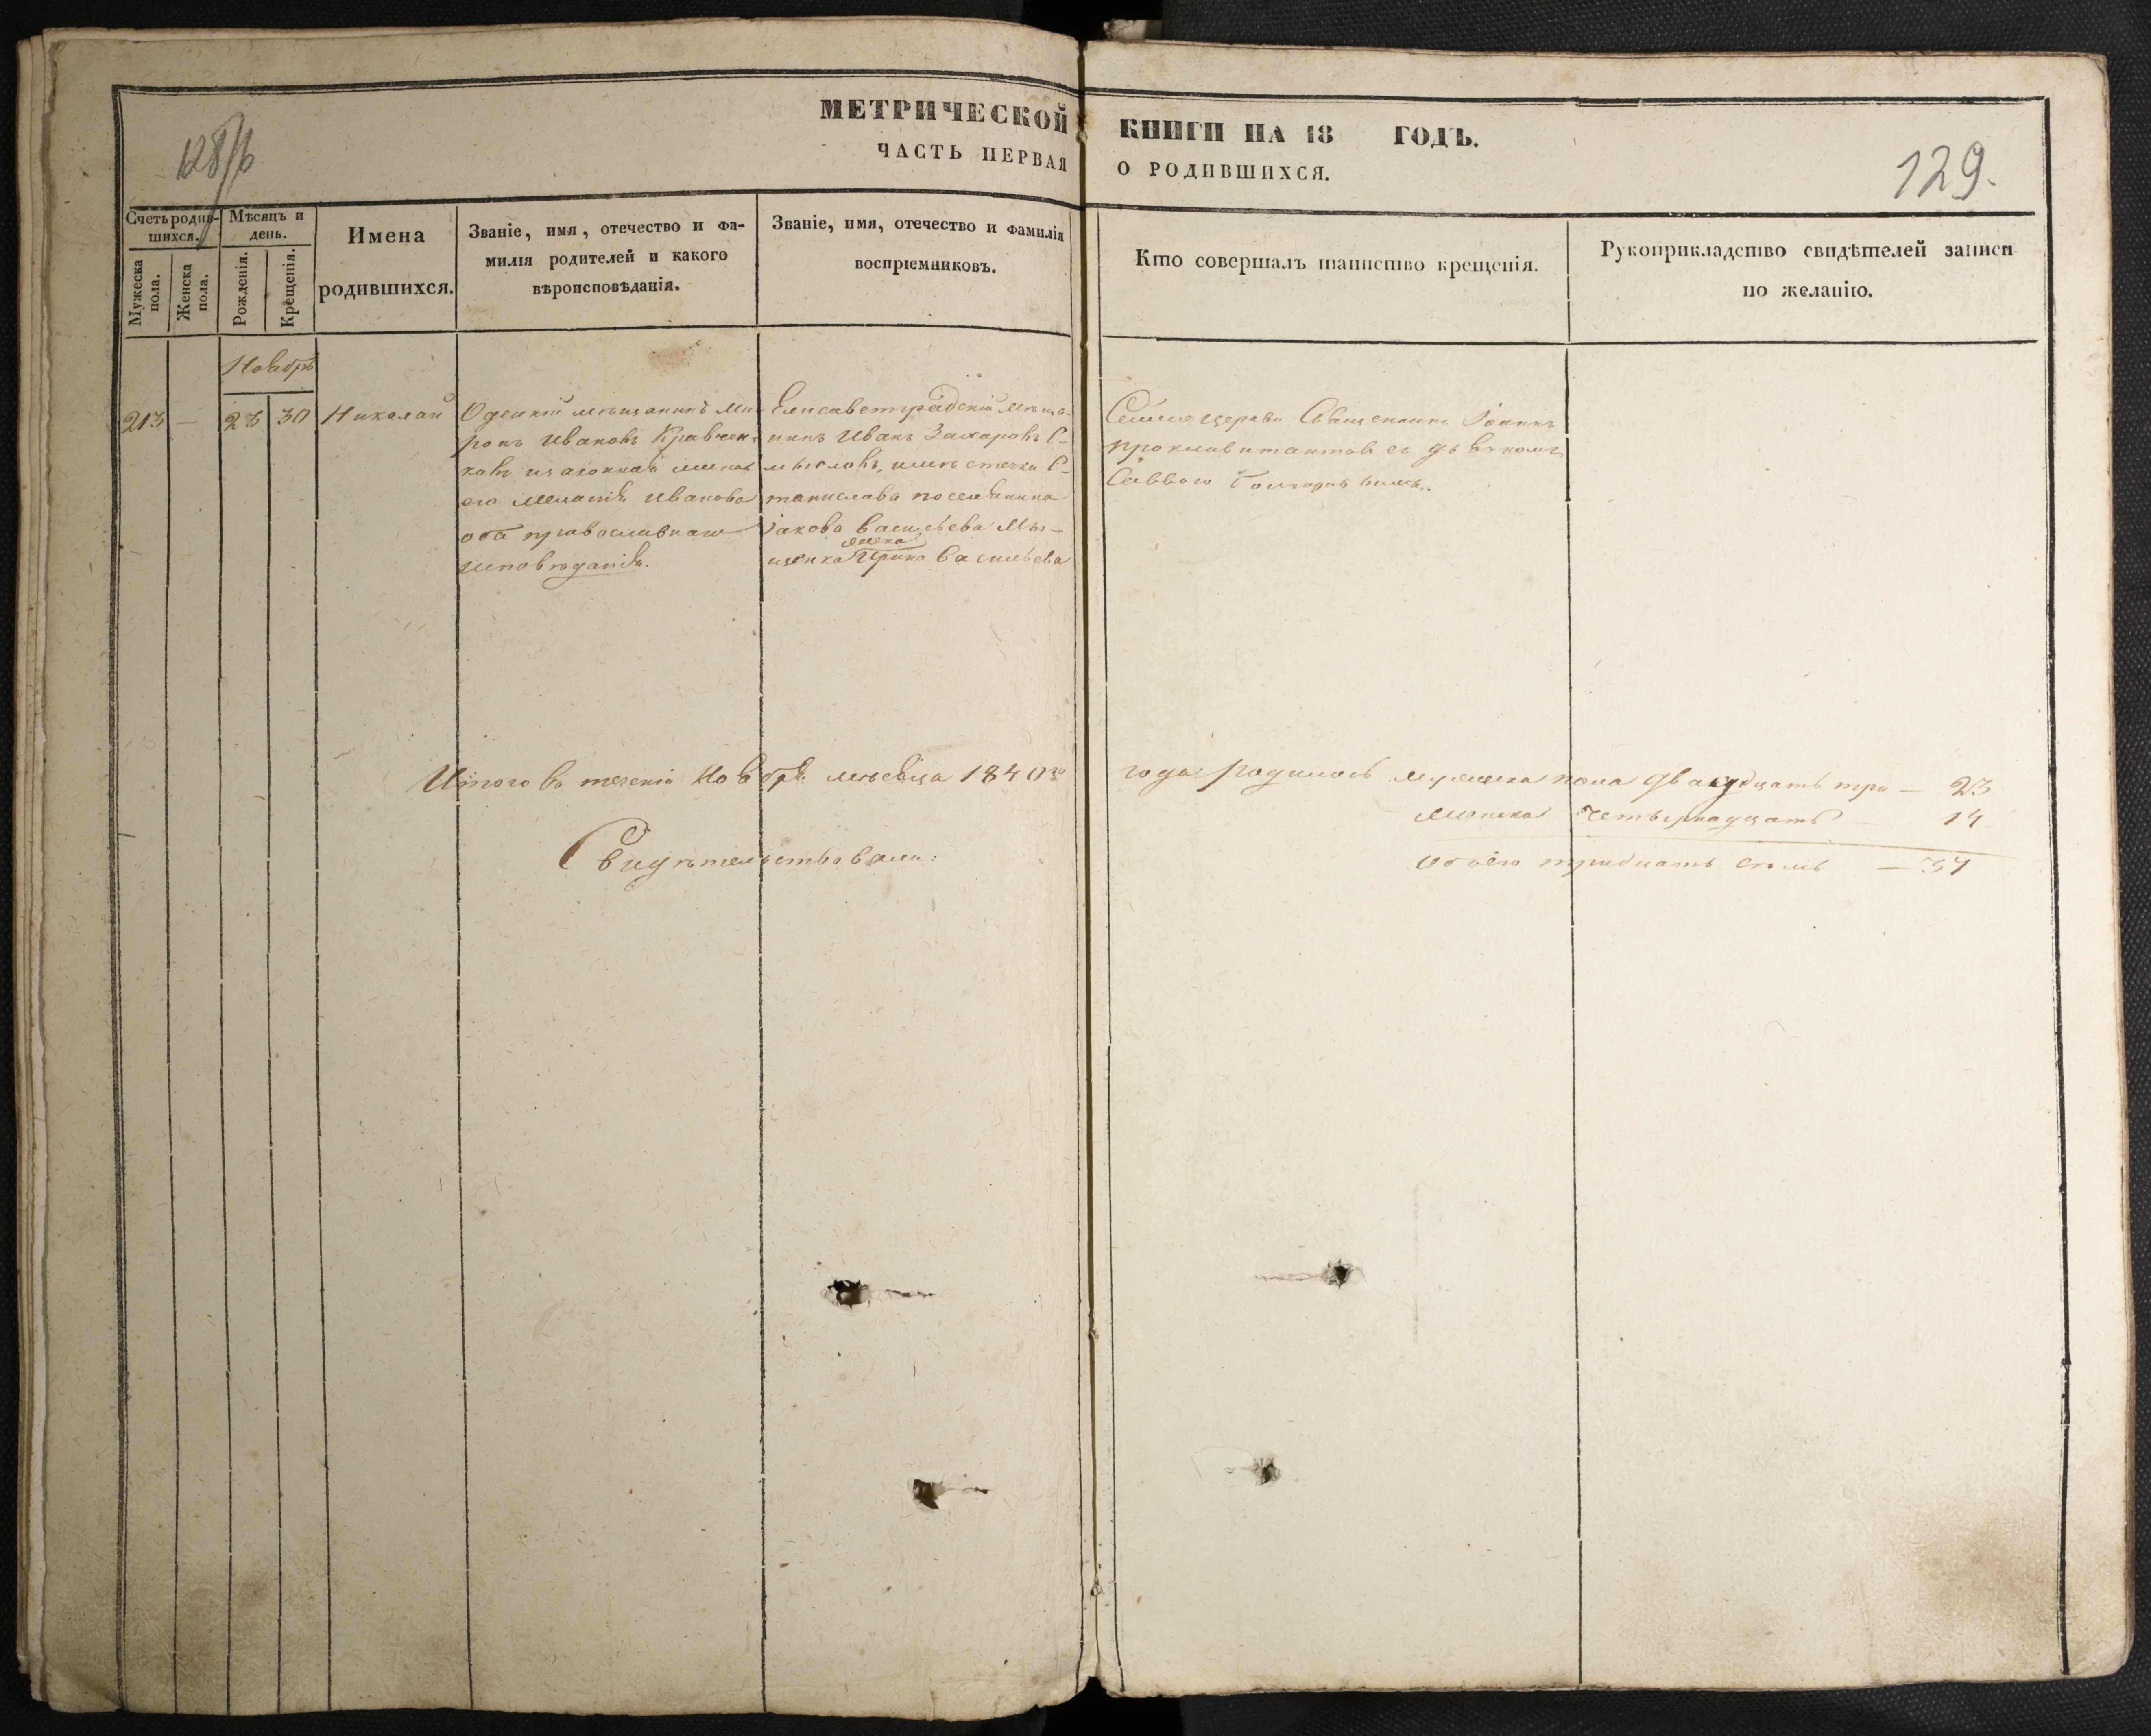 МЕТРИЧЕСКОЙ КНИГИ НА 18 ГОДЪ.
ЧАСТЬ ПЕРВАЯ О РОДИВШИХСЯ.
129.
Счетъ родив-
шихся.
Мужеска
пола.
Женска
пола.
Мѣсяцъ и
день.
Рожденія.
Крещенія.
Имена
родившихся.
Званіе, имя, отечество и фа-
милія родителей и какого
вѣроисповѣданія.
Званіе, имя, отечество и фамилія
воспріемниковъ.
Кто совершалъ таинство крещенія.
Рукоприкладство свидѣтелей записи
по желанію.
Ноябрь
213 — 23 30 Николай
Одескій мѣщанинъ Ми-
ронъ Ивановъ Кравчен-
ковъ и законная жена
его Меланія Иванова
оба православнаго
исповѣданія.
Елисаветградскій мѣща-
нинъ Иванъ Захаровъ С-
мысловъ, и мѣстечка С-
танислава поселянина
Іакова Васильева Мы-
жена
ценка Ирина Васильева
Священникъ Іоаннъ
съ дьячкомъ
Саввою
Итого въ теченіи Ноября мѣсяца 1840го года родилось мужеска пола двадцать три — 23
женска четырнадцать — 14
обоего тридцать семь — 37
Свидѣтельствовали: